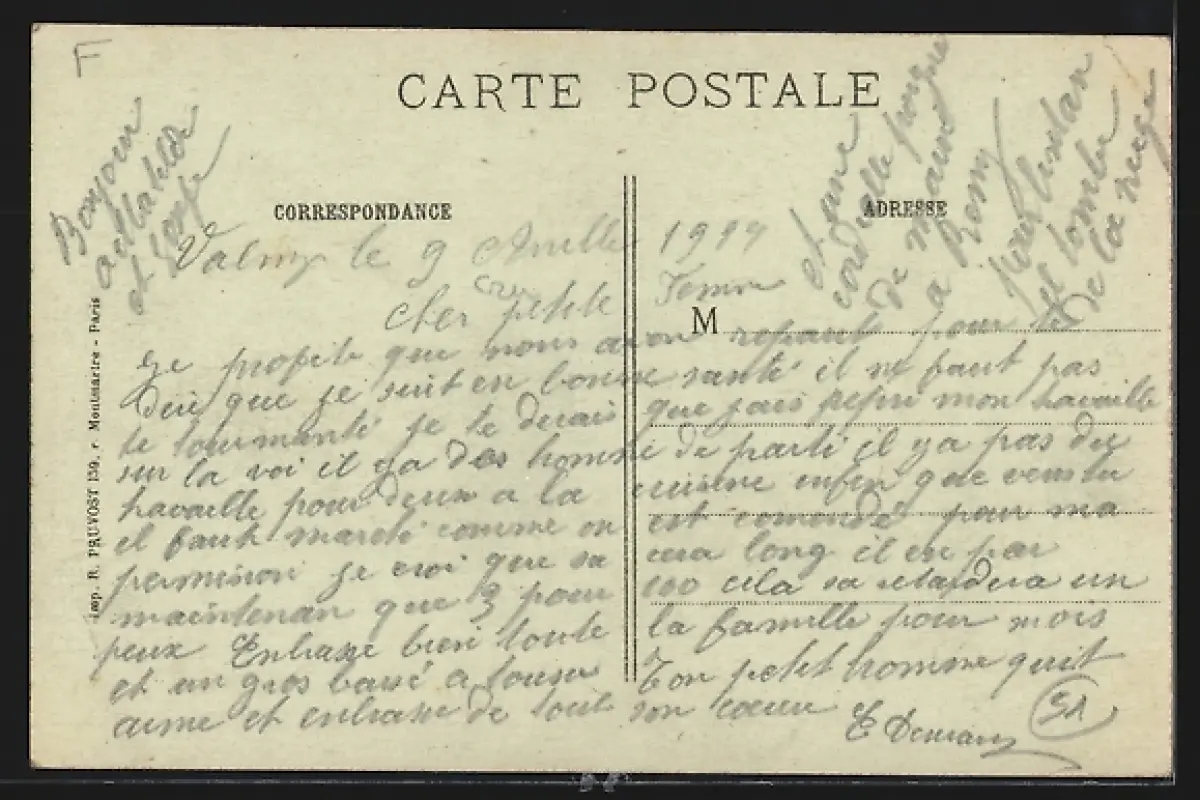 F
CARTE POSTALE
CORRESPONDANCE
ADRESSE
Bonjour
a Matilde
et
et une
cordialle poigné
de main
a Remy
pour linstan
il tombe
de la neige
Valmy le 9 Avrille 1919
cher petite Femme
M
Je profite que nous avon repaut pour te
dire que je suit en bonne santé il ne faut pas
te tourmanté je te dirais que jais repri mon travaille
sur la voi il y a des homme de parti il y a pas du
travaille pour deux a la cuisine enfin que veus tu
il faut marché comme on est comendé pour ma
permision je croi que sa cera long il en par
maintenan que 3 pour 100 cela sa retardera un
peux Enbrasse bien toute la famille pour mois
et un gros baisé a tousse Ton petit homme quit
aime et enbrasse de tout son coeur
E
51
Imp. R. PRUVOST 159, r Montmartre - Paris